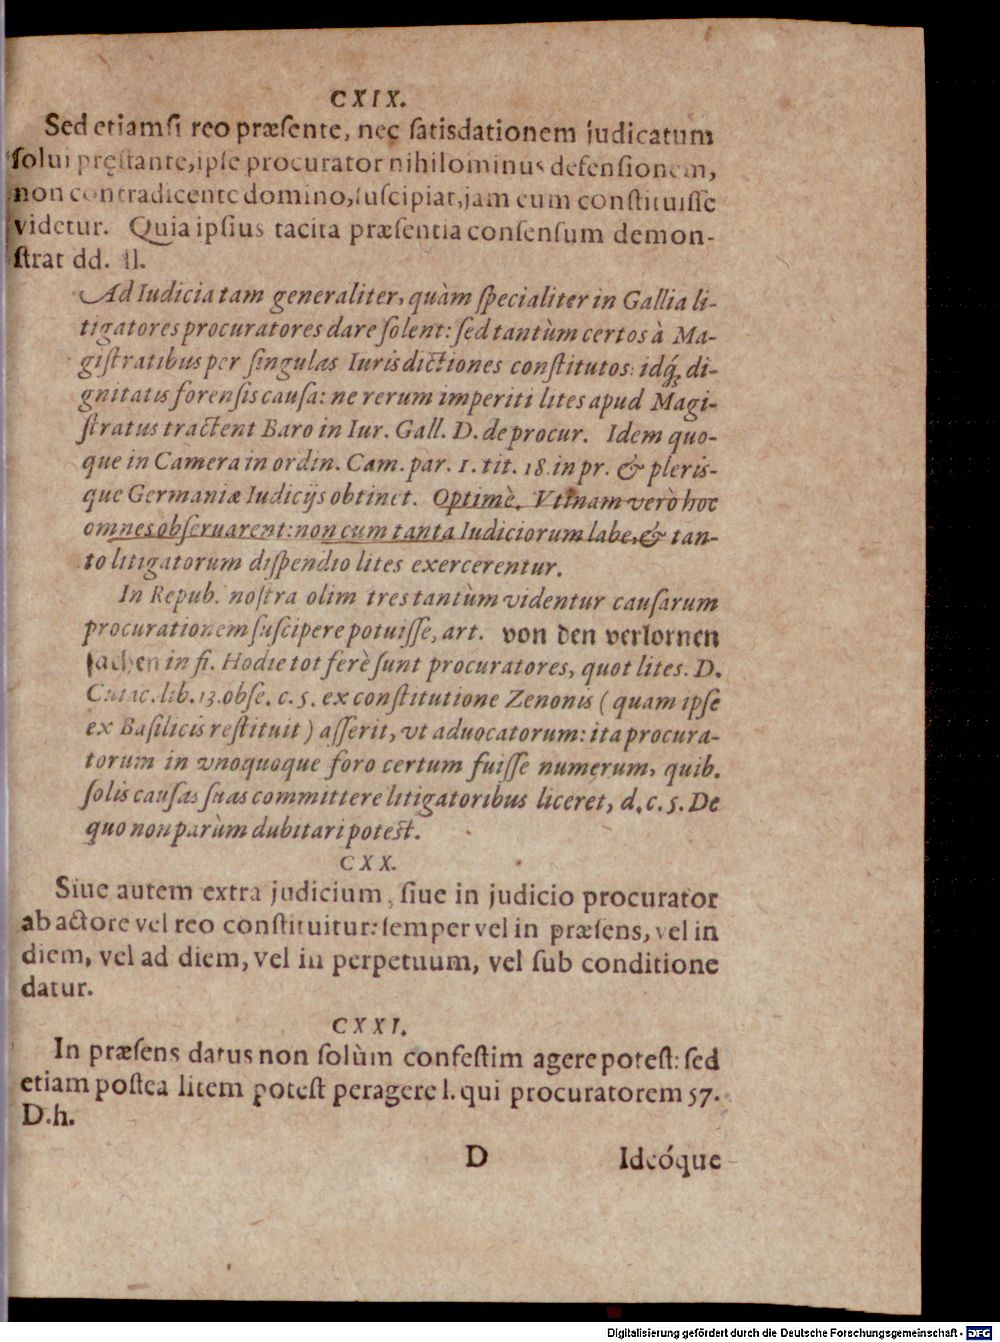 CXIX.
Sed etiamsi reo præsente, nec satisdationem judicatum
solui pręstante, ipse procurator nihilominus defensionem,
non contradicente domino, suscipiat, jam eum constituisse
videtur. Quia ipsius tacita præsentia consensum demon-
strat dd. ll.
Ad Iudicia tam generaliter, quàm specialiter in Gallia li-
tigatores procuratores dare solent: sed tantùm certos à Ma-
gistratibus per singulas Iurisdictiones constitutos: idq́; di-
gnitatis forensis causa: ne rerum imperiti lites apud Magi-
stratus tractent Baro in Iur. Gall. D. de procur. Idem quo-
que in Camera in ordin. Cam. par. 1. tit. 18. in pr. & pleris-
que Germaniæ Iudicijs obtinet. Optimè. Vtinam verò hoc
omnes obseruarent: non cum tanta Iudiciorum labe, & tan-
to litigatorum dispendio lites exercerentur.
In Repub. nostra olim tres tantùm videntur causarum
procurationem suscipere potuisse, art. von den verlornen
sachen in fi. Hodie tot ferè sunt procuratores, quot lites. D.
Cuiac. lib. 13. obse. c. 5. ex constitutione Zenonis ( quam ipse
ex Basilicis restituit ) asserit, vt aduocatorum: ita procura-
torum in vnoquoque foro certum fuisse numerum, quib.
solis causas suas committere litigatoribus liceret, d. c. 5. De
quo non parùm dubitari potest.
CXX.
Siue autem extra judicium, siue in judicio procurator
ab actore vel reo constituitur: semper vel in præsens, vel in
diem, vel ad diem, vel in perpetuum, vel sub conditione
datur.
CXXI.
In præsens datus non solùm confestim agere potest: sed
etiam postea litem potest peragere l. qui procuratorem 57.
D. h.
D Ideóque
Digitalisierung gefördert durch die Deutsche Forschungsgemeinschaft - DFG